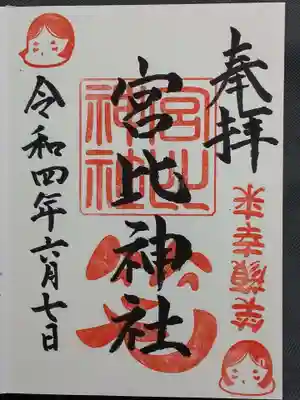 奉拝
笑顔幸来
宮比神社
宮比
神社
令和四年六月七日